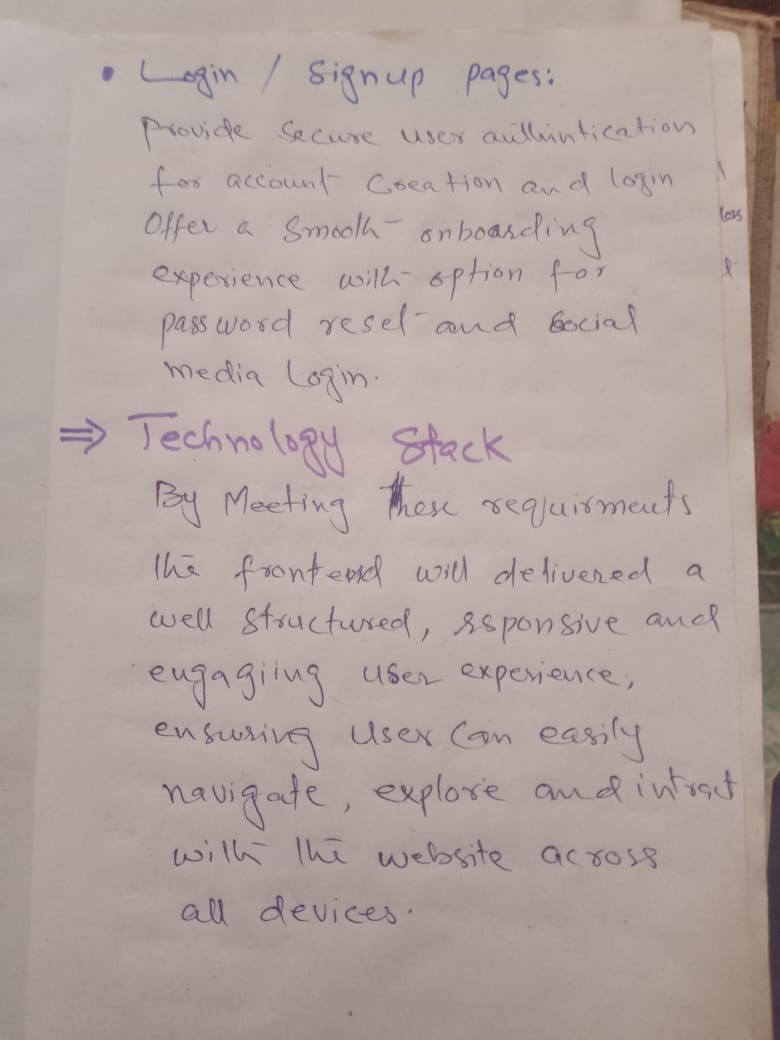 • Login / Signup pages:
Provide Secure user authintication
for account Creation and login
Offer a Smooth onboarding
experience with option for
password reset and Social
media Login.
⇒ Technology Stack
By Meeting These requirments
the frontend will delivered a
well structured, rsponsive and
engagiing user experience,
ensuring user can easily
navigate, explore and intract
with the website across
all devices.
loss